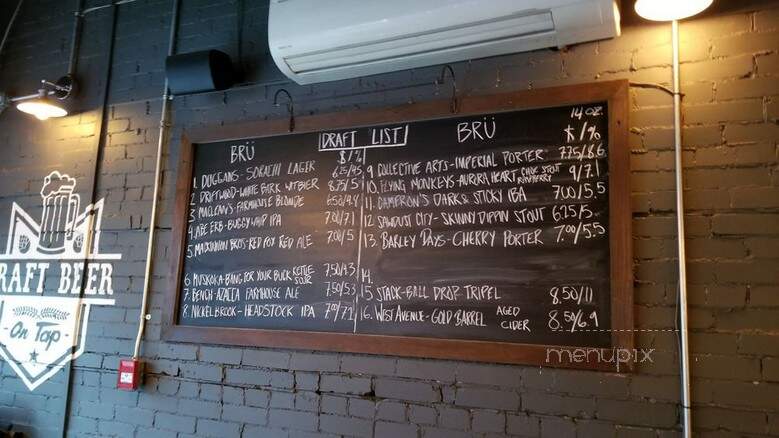 DRAFT LIST
14 OZ.
BRÜ $/%
1. DUGGANS - SORACHI LAGER 6.25/4.5
2. DRIFTWOOD - WHITE BARK WITBIER 8.75/5
3. MACLEAN'S - FARMHOUSE BLONDE 6.50/4.8
4. ABE ERB - BUGGY WHIP IPA 7.00/7.1
5. MACKINNON BROS - RED FOX RED ALE 7.00/5
6. MUSKOKA - BANG FOR YOUR BUCK KETTLE SOUR 7.50/4.3
7. BENCH - AZACCA FARMHOUSE ALE 7.50/5.3
8. NICKEL BROOK - HEADSTOCK IPA 7.00/7.2
BRÜ $/%
9 COLLECTIVE ARTS - IMPERIAL PORTER 7.75/8.6
10. FLYING MONKEYS - AURORA HEART CHOC STOUT RASPBERRY 9/7.1
11. CAMERON'S DARK & STICKY IBA 7.00/5.5
12 SAWDUST CITY - SKINNY DIPPIN STOUT 6.25/5
13. BARLEY DAYS - CHERRY PORTER 7.00/5.5
14.
15. STACK - BALL DROP TRIPEL 8.50/11
16. WEST AVENUE - GOLD BARREL AGED CIDER 8.50/6.9
RAFT BEER
On Tap
menupix